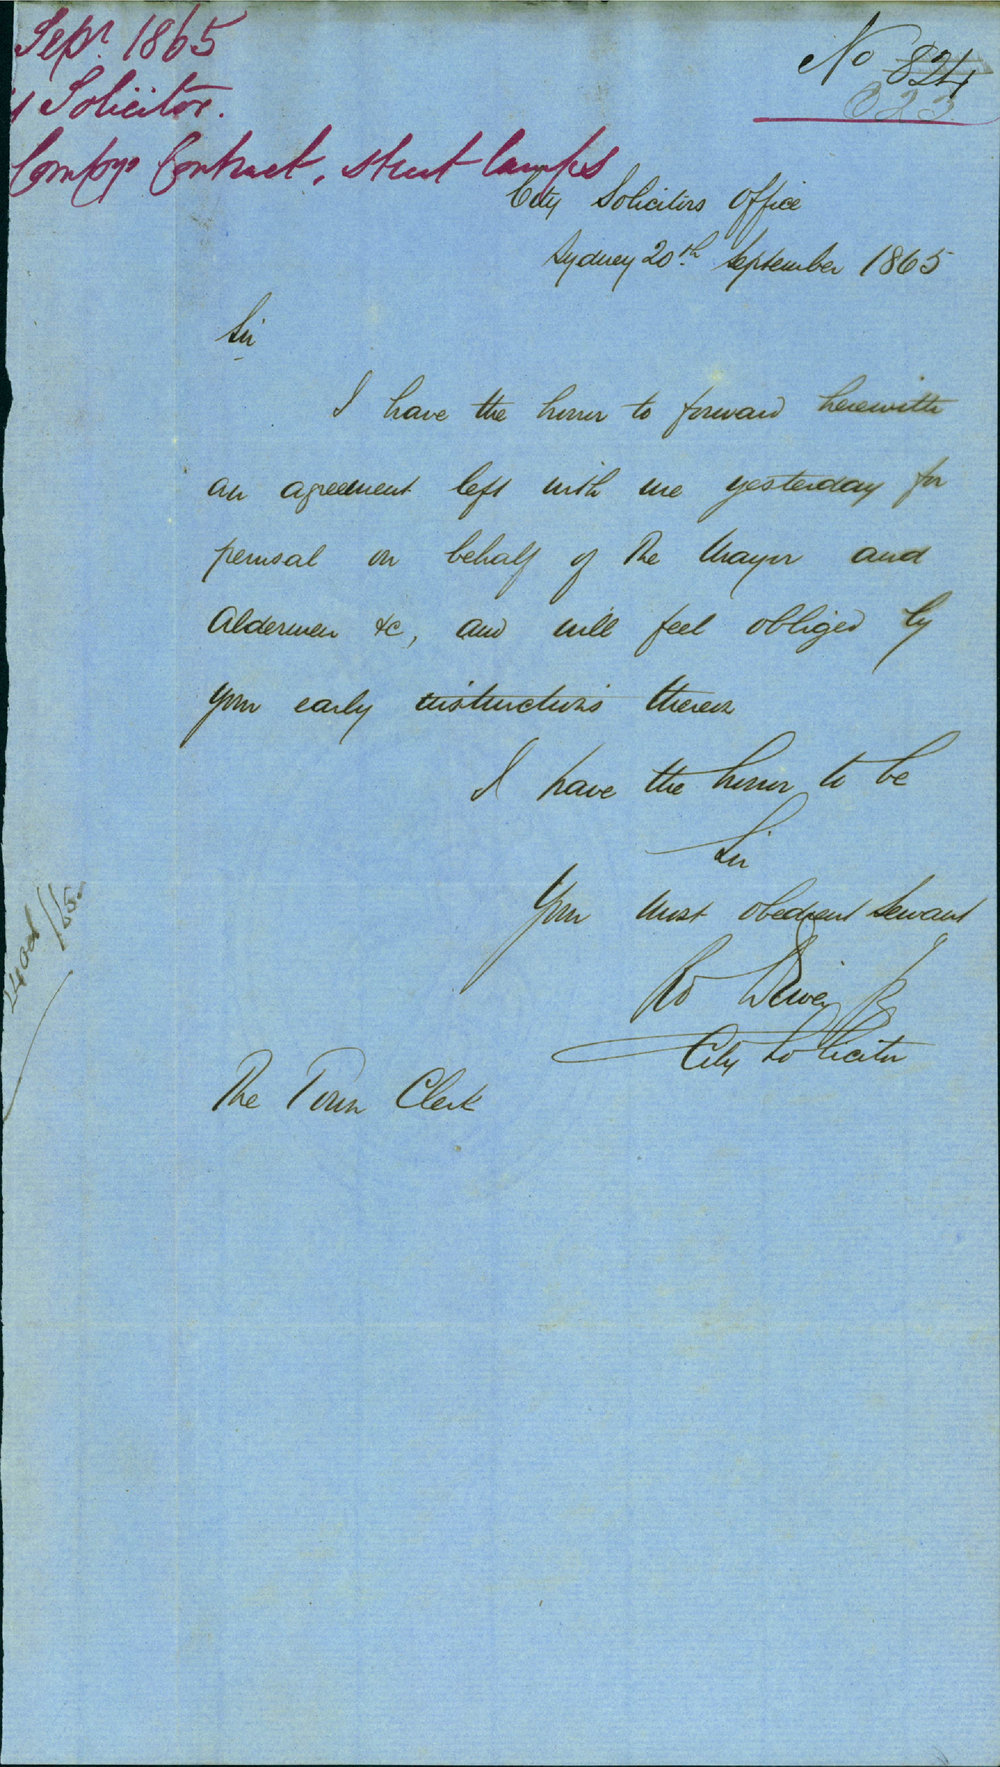 Sepr. 1865
Solicitor.
Compys Contract, street lamps
No 824
823
City Solicitors Office
Sydney 20th September 1865
Sir
I have the honor to forward herewith
an agreement left with me yesterday for
perusal on behalf of The Mayor and
Aldermen &c, and will feel obliged by
your early instructions thereon
I have the honor to be
Sir
Your most obedient Servant
City Solicitor
The Town Clerk